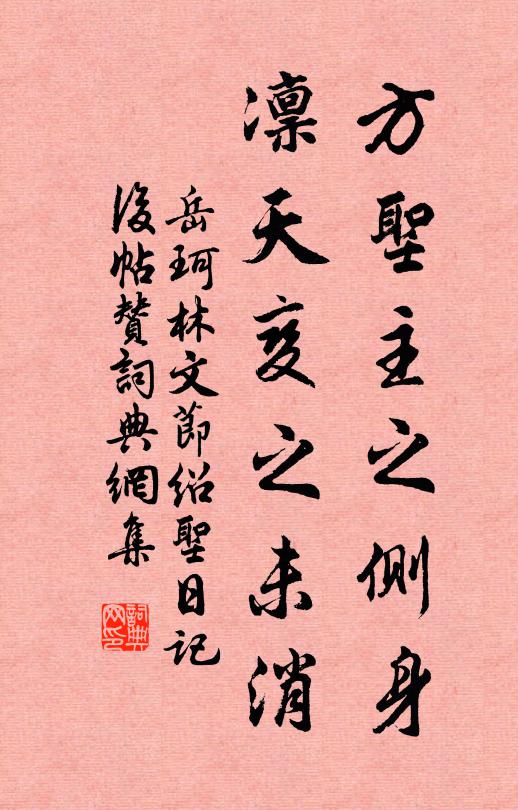 方聖主之側身
凜天变之未消
岳珂林文節紹聖日記
後帖贊詞典網集
詞典网印